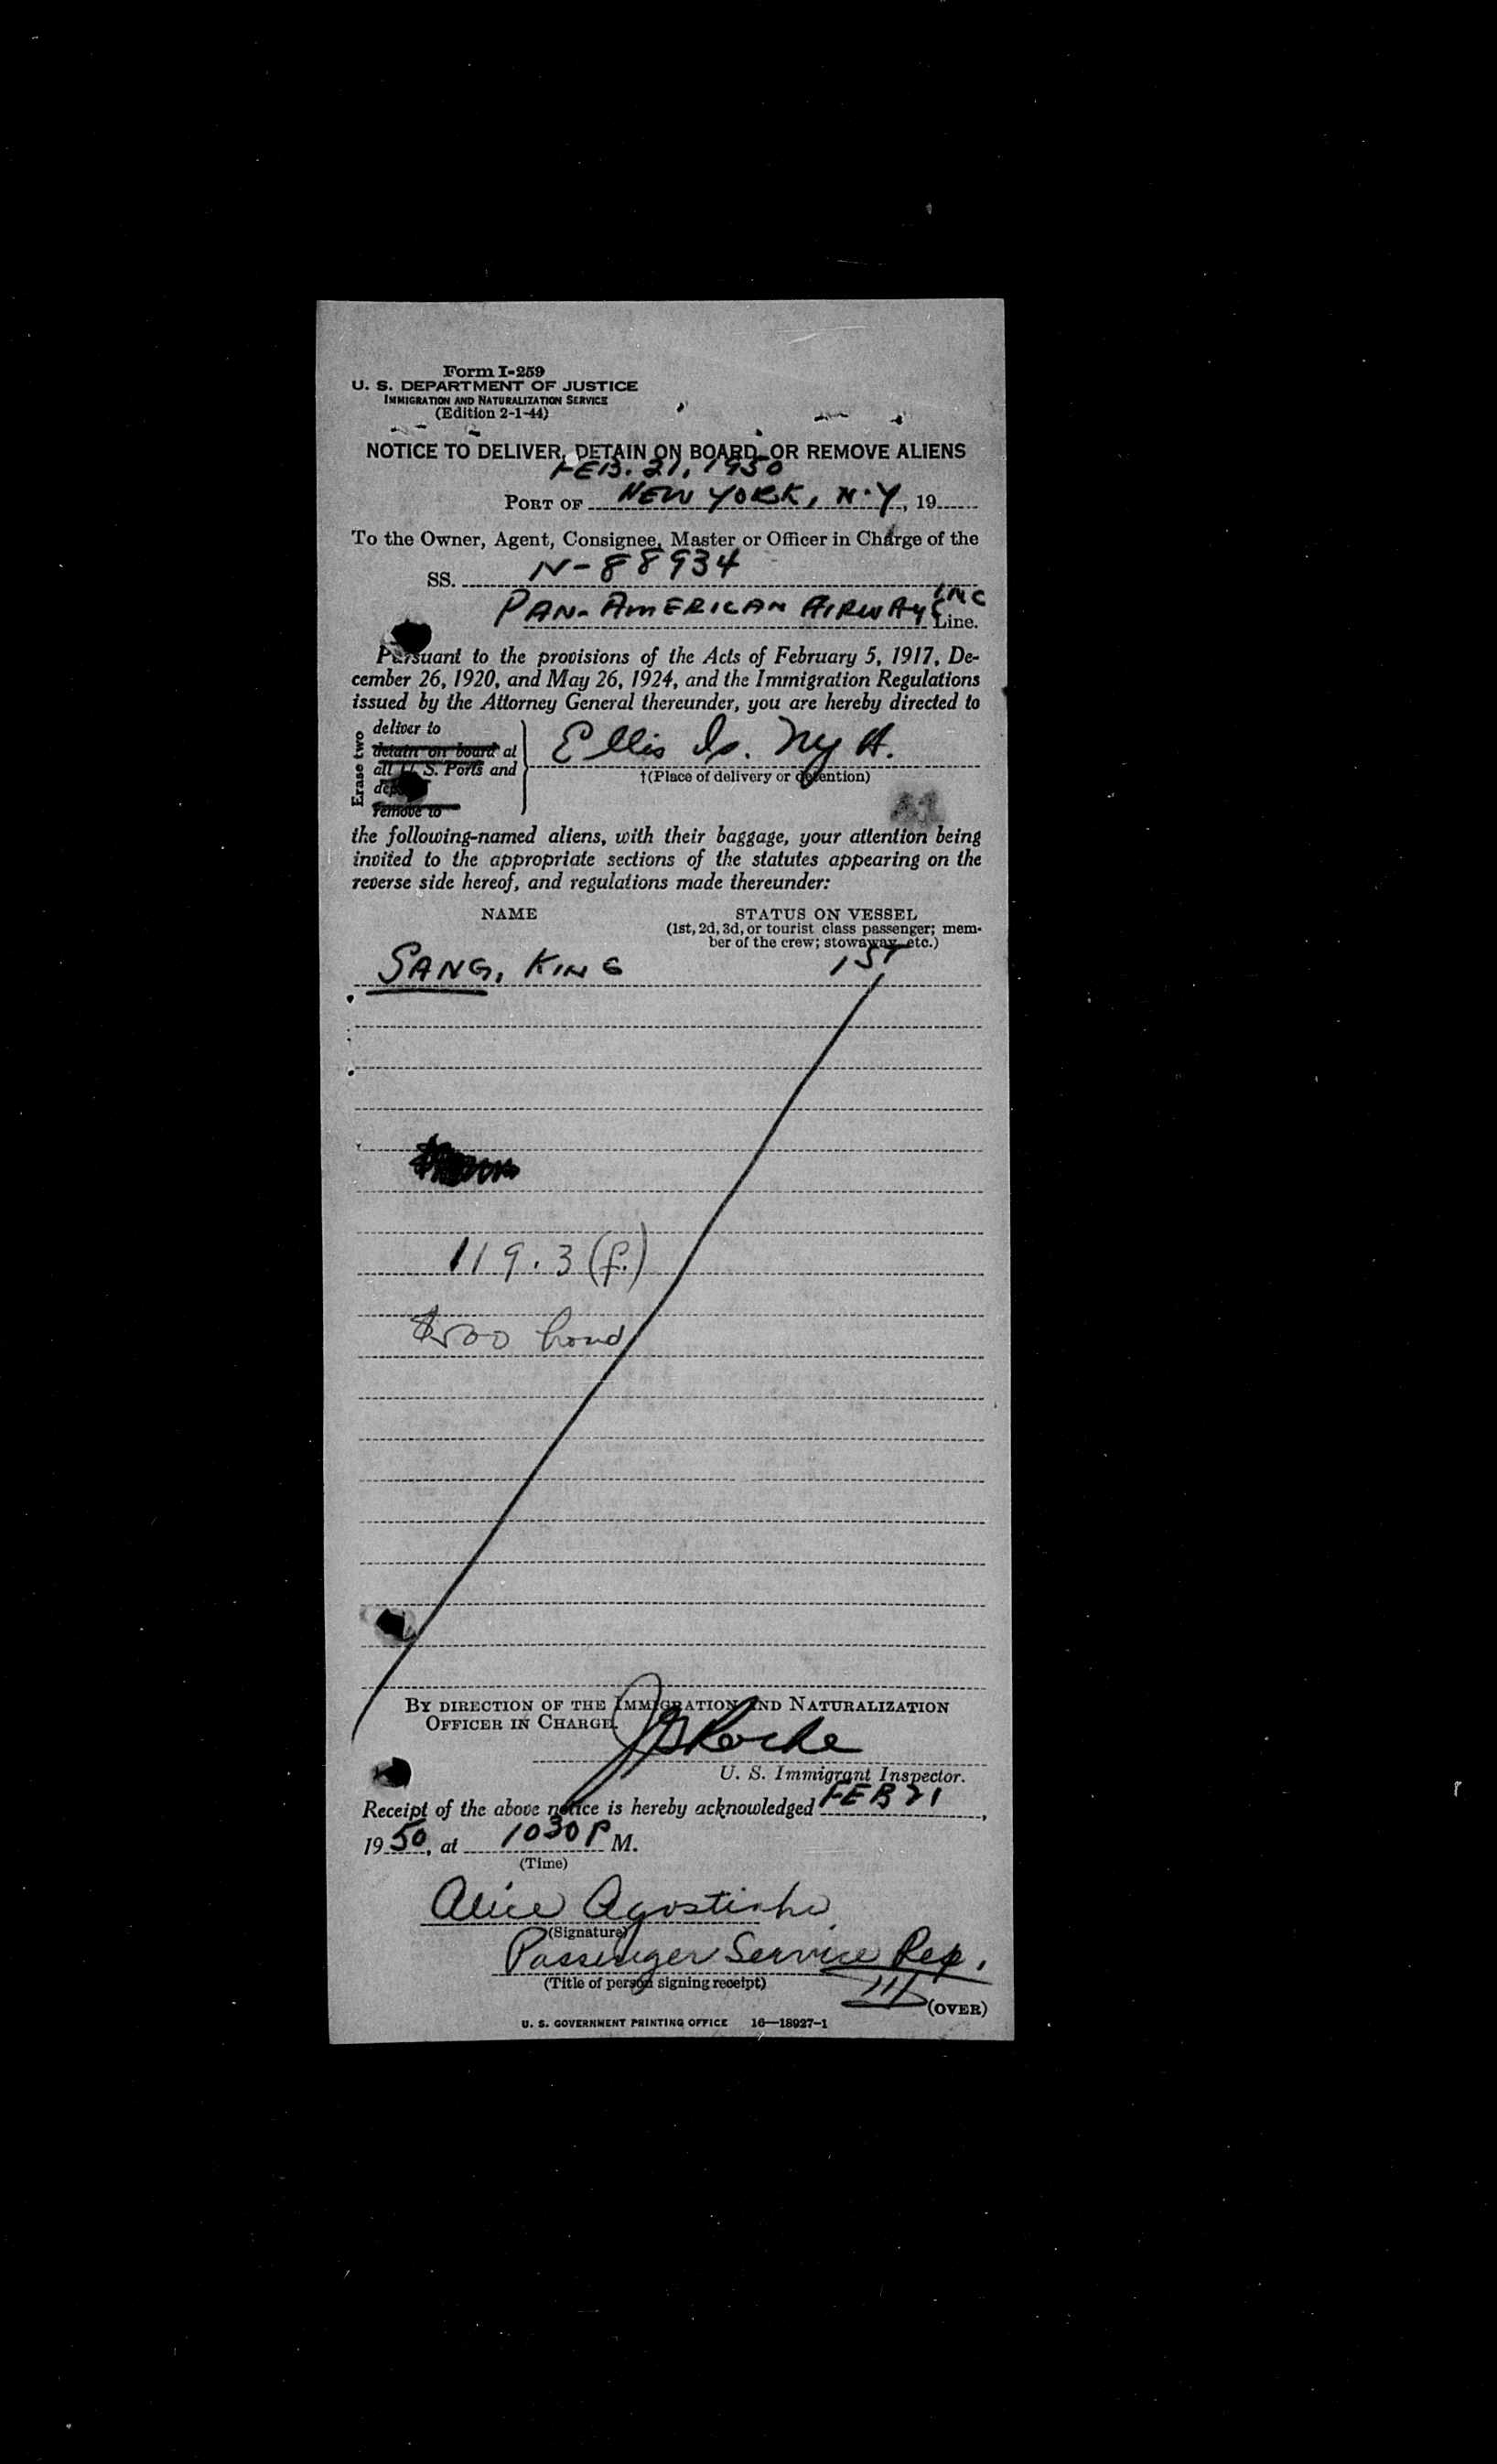 Form I-259
U. S. DEPARTMENT OF JUSTICE
IMMIGRATION AND NATURALIZATION SERVICE
(Edition 2-1-44)
NOTICE TO DELIVER, DETAIN ON BOARD, OR REMOVE ALIENS
FEB. 21, 1950
PORT OF NEW YORK, N.Y, 19
To the Owner, Agent, Consignee, Master or Officer in Charge of the
SS. N-88934
PAN-AMERICAN AIRWAYS INC
Line.
Pursuant to the provisions of the Acts of February 5, 1917, De-
cember 26, 1920, and May 26, 1924, and the Immigration Regulations
issued by the Attorney General thereunder, you are hereby directed to
Erase two
deliver to
detain on board at
all U. S. Ports and
remove to
Ellis Is. Ny H.
†(Place of delivery or detention)
the following-named aliens, with their baggage, your attention being
invited to the appropriate sections of the statutes appearing on the
reverse side hereof, and regulations made thereunder:
NAME STATUS ON VESSEL
(1st, 2d, 3d, or tourist class passenger; mem-
ber of the crew; stowaway, etc.)
SANG, KING 1ST
119.3 (f.)
$500 bond
BY DIRECTION OF THE IMMIGRATION AND NATURALIZATION
OFFICER IN CHARGE.
Roche
U. S. Immigrant Inspector.
Receipt of the above notice is hereby acknowledged FEB 21,
1950, at 1030 P M.
(Time)
Alice Agostinho
(Signature)
Passenger Service Rep.
(Title of person signing receipt)
(OVER)
U. S. GOVERNMENT PRINTING OFFICE 16—18927-1